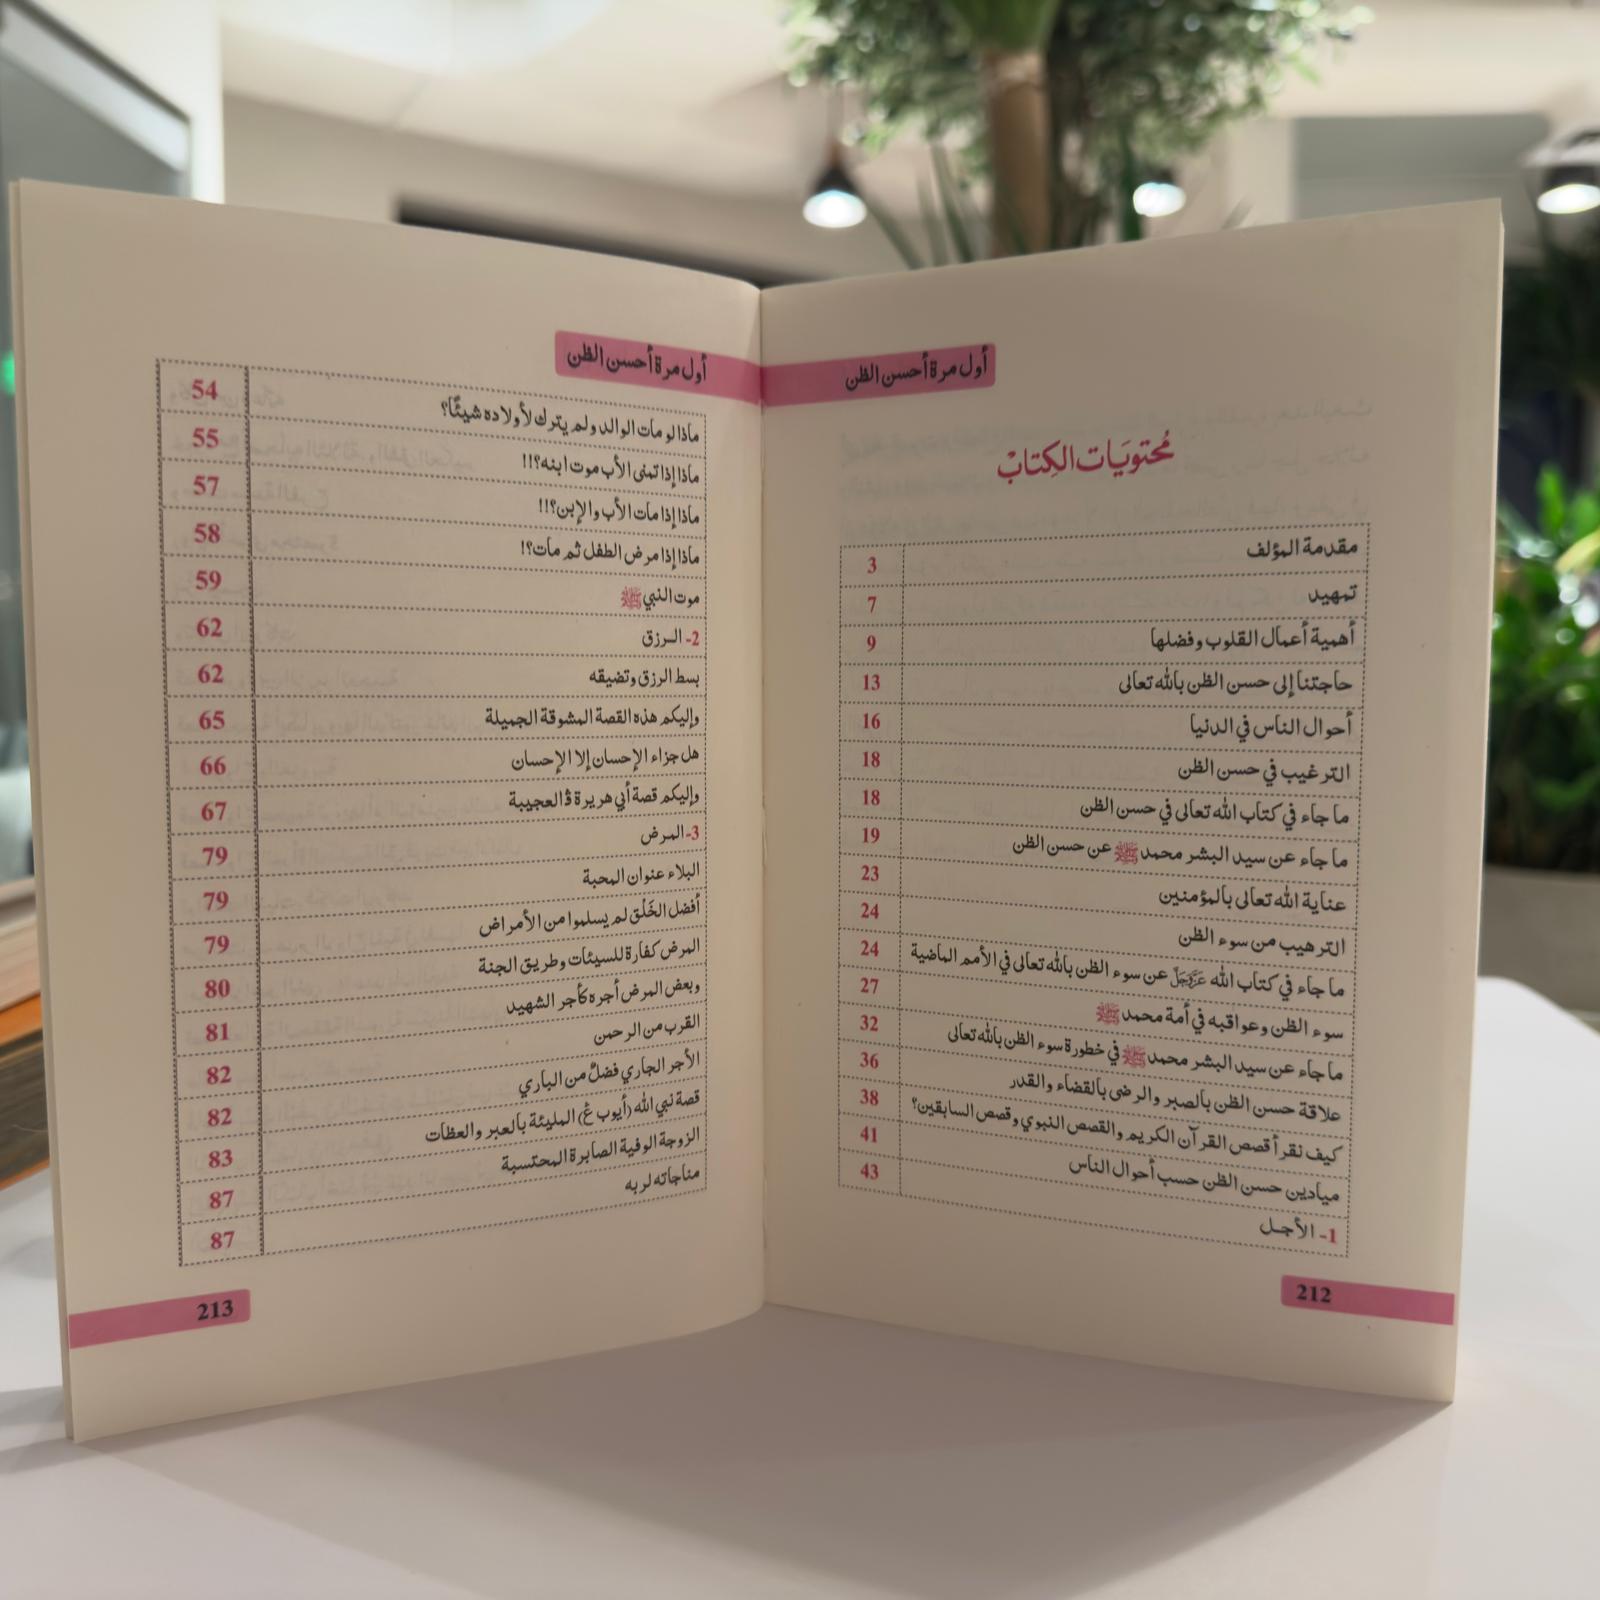 أول مرة أحسن الظن
مُحتويَات الكِتابْ
مقدمة المؤلف 3
تمهيد 7
أهمية أعمال القلوب وفضلها 9
حاجتنا إلى حسن الظن بالله تعالى 13
أحوال الناس في الدنيا 16
الترغيب في حسن الظن 18
ما جاء في كتاب الله تعالى في حسن الظن 18
ما جاء عن سيد البشر محمد ﷺ عن حسن الظن 19
عناية الله تعالى بالمؤمنين 23
الترهيب من سوء الظن 24
ما جاء في كتاب الله عَزَّوَجَلَّ عن سوء الظن بالله تعالى في الأمم الماضية 24
سوء الظن وعواقبه في أمة محمد ﷺ 27
ما جاء عن سيد البشر محمد ﷺ في خطورة سوء الظن بالله تعالى 32
علاقة حسن الظن بالصبر والرضى بالقضاء والقدر 36
كيف نقرأ قصص القرآن الكريم والقصص النبوي وقصص السابقين؟ 38
ميادين حسن الظن حسب أحوال الناس 41
1- الأجـل 43
212
أول مرة أحسن الظن
ماذا لو مات الوالد ولم يترك لأولاده شيئًا؟ 54
ماذا إذا تمنى الأب موت ابنه؟!! 55
ماذا إذا مات الأب والإبن؟!! 57
ماذا إذا مرض الطفل ثم مات؟! 58
موت النبي ﷺ 59
2- الـرزق 62
بسط الرزق وتضيقه 62
وإليكم هذه القصة المشوقة الجميلة 65
هل جزاء الإحسان إلا الإحسان 66
وإليكم قصة أبي هريرة ؓ العجيبة 67
3- المـرض 79
البلاء عنوان المحبة 79
أفضل الخَلْق لم يسلموا من الأمراض 79
المرض كفارة للسيئات وطريق الجنة 80
وبعض المرض أجره كأجر الشهيد 81
القرب من الرحمن 82
الأجر الجاري فضلٌ من الباري 82
قصة نبي الله (أيوب ؑ) المليئة بالعبر والعظات 83
الزوجة الوفية الصابرة المحتسبة 87
مناجاته لربه 87
213